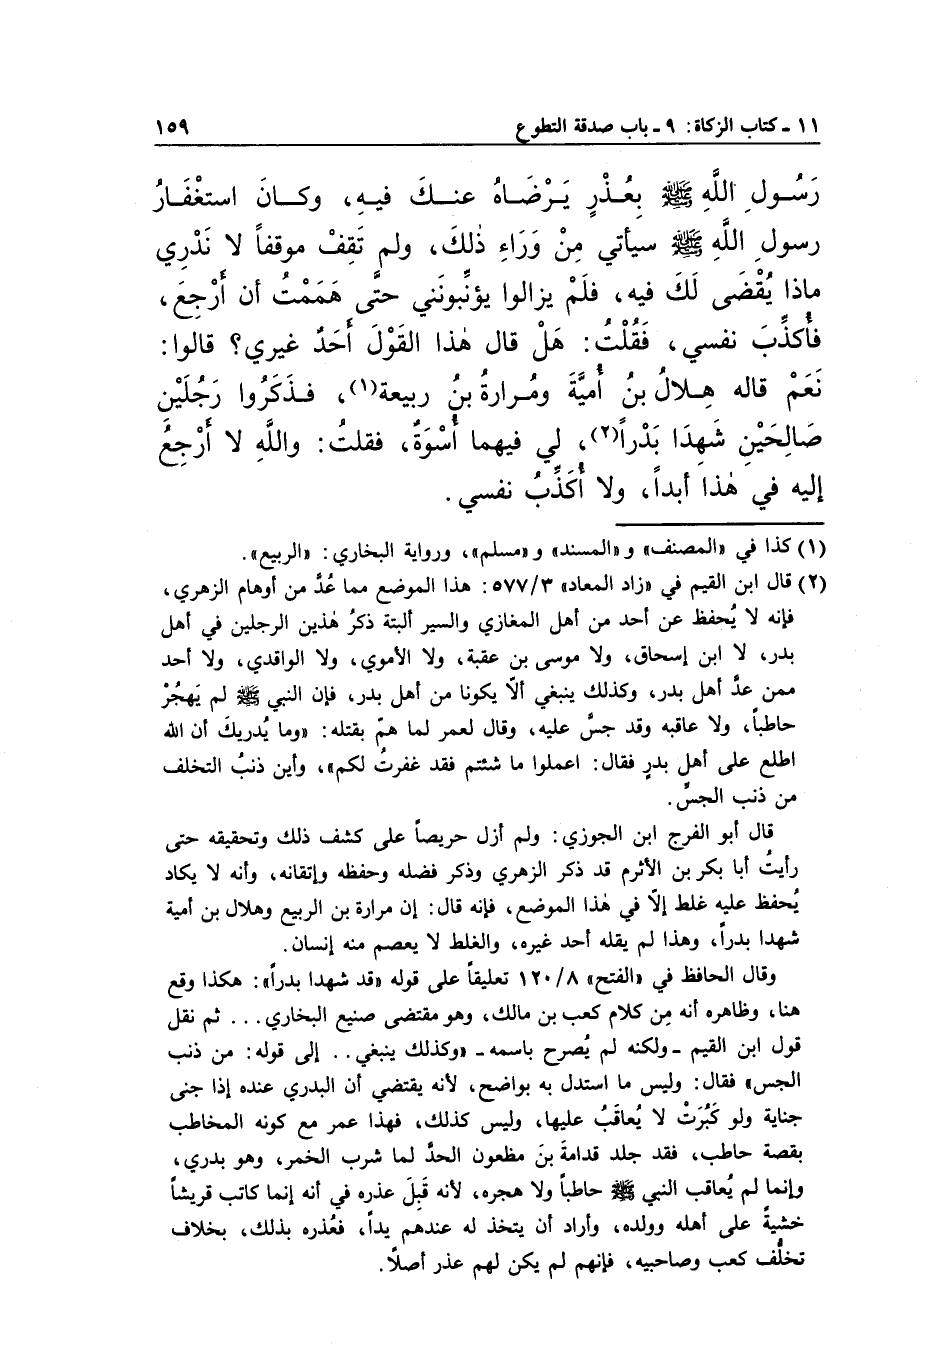 ١١ - كتاب الزكاة: ٩ - باب صدقة التطوع ١٥٩
رَسُـولِ اللَّهِ ﷺ بِعُـذْرٍ يَـرْضَـاهُ عنـكَ فيـه، وكـانَ استغْفَـارُ
رسولِ اللَّهِ ﷺ سيأتي مِنْ وَرَاءِ ذٰلكَ، ولم تَقِفْ موقفاً لا نَدْرِي
ماذا يُقْضَى لَكَ فيه، فلَمْ يزالوا يؤنِّبونَني حتَّى هَمَمْتُ أن أَرْجِعَ،
فأُكذِّبَ نفسي، فَقُلْتُ: هَلْ قال هٰذا القَوْلَ أَحَدٌ غيري؟ قالوا:
نَعَمْ قاله هِـلالُ بنُ أُميَّةَ ومُـرارةُ بنُ ربيعة(١)، فـذَكَرُوا رَجُلَيْنِ
صَالِحَيْنِ شَهِدَا بَدْراً(٢)، لي فيهما أُسْوَةٌ، فقلتُ: واللَّهِ لا أَرْجِعُ
إليه في هٰذا أبداً، ولا أُكَذِّبُ نفسي.
(١) كذا في «المصنف» و«المسند» و«مسلم»، ورواية البخاري: «الربيع».
(٢) قال ابن القيم في «زاد المعاد» ٥٧٧/٣: هذا الموضع مما عُدَّ من أوهام الزهري،
فإنه لا يُحفظ عن أحد من أهل المغازي والسير ألبتة ذكرُ هٰذين الرجلين في أهل
بدر، لا ابن إسحاق، ولا موسى بن عقبة، ولا الأموي، ولا الواقدي، ولا أحد
ممن عدَّ أهل بدر، وكذلك ينبغي ألّا يكونا من أهل بدر، فإن النبي ﷺ لم يَهجُرْ
حاطباً، ولا عاقبه وقد جسَّ عليه، وقال لعمر لما همّ بقتله: «وما يُدريكَ أن الله
اطلع على أهلِ بدرٍ فقال: اعملوا ما شئتم فقد غفرتُ لكم»، وأين ذنبُ التخلف
من ذنب الجسِّ.
قال أبو الفرج ابن الجوزي: ولم أزل حريصاً على كشف ذلك وتحقيقه حتى
رأيتُ أبا بكر بن الأثرم قد ذكر الزهري وذكر فضله وحفظه وإتقانه، وأنه لا يكاد
يُحفظ عليه غلط إلّا في هٰذا الموضع، فإنه قال: إن مرارة بن الربيع وهلال بن أمية
شهدا بدراً، وهذا لم يقله أحد غيره، والغلط لا يعصم منه إنسان.
وقال الحافظ في «الفتح» ١٢٠/٨ تعليقاً على قوله «قد شهدا بدراً»: هكذا وقع
هنا، وظاهره أنه مِن كلام كعب بن مالك، وهو مقتضى صنيع البخاري... ثم نقل
قول ابن القيم - ولكنه لم يُصرح باسمه - «وكذلك ينبغي.. إلى قوله: من ذنب
الجس» فقال: وليس ما استدل به بواضح، لأنه يقتضي أن البدري عنده إذا جنى
جناية ولو كَبُرَتْ لا يُعاقَبُ عليها، وليس كذلك، فهذا عمر مع كونه المخاطب
بقصة حاطب، فقد جلد قدامةَ بنَ مظعون الحدَّ لما شرب الخمر، وهو بدري،
وإنما لم يُعاقب النبي ﷺ حاطباً ولا هجره، لأنه قَبِلَ عذره في أنه إنما كاتب قريشاً
خشيةً على أهله وولده، وأراد أن يتخذ له عندهم يداً، فعُذره بذلك، بخلاف
تخلُّف كعب وصاحبيه، فإنهم لم يكن لهم عذر أصلًا.